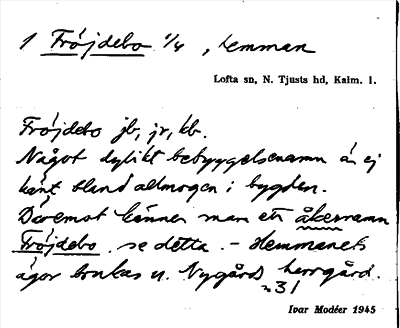 1 Fröjdebo 1/4, hemman
Lofta sn, N. Tjusts hd, Kalm. l.
Fröjdebo jb, jr, kb.
Något dylikt bebyggelsenamn är ej
känt bland allmogen i bygden.
Däremot känner man ett åkernamn
Fröjdebo, se detta. - Hemmanets
ägor brukas u. Nygård herrgård.
n31
Ivar Modéer 1945